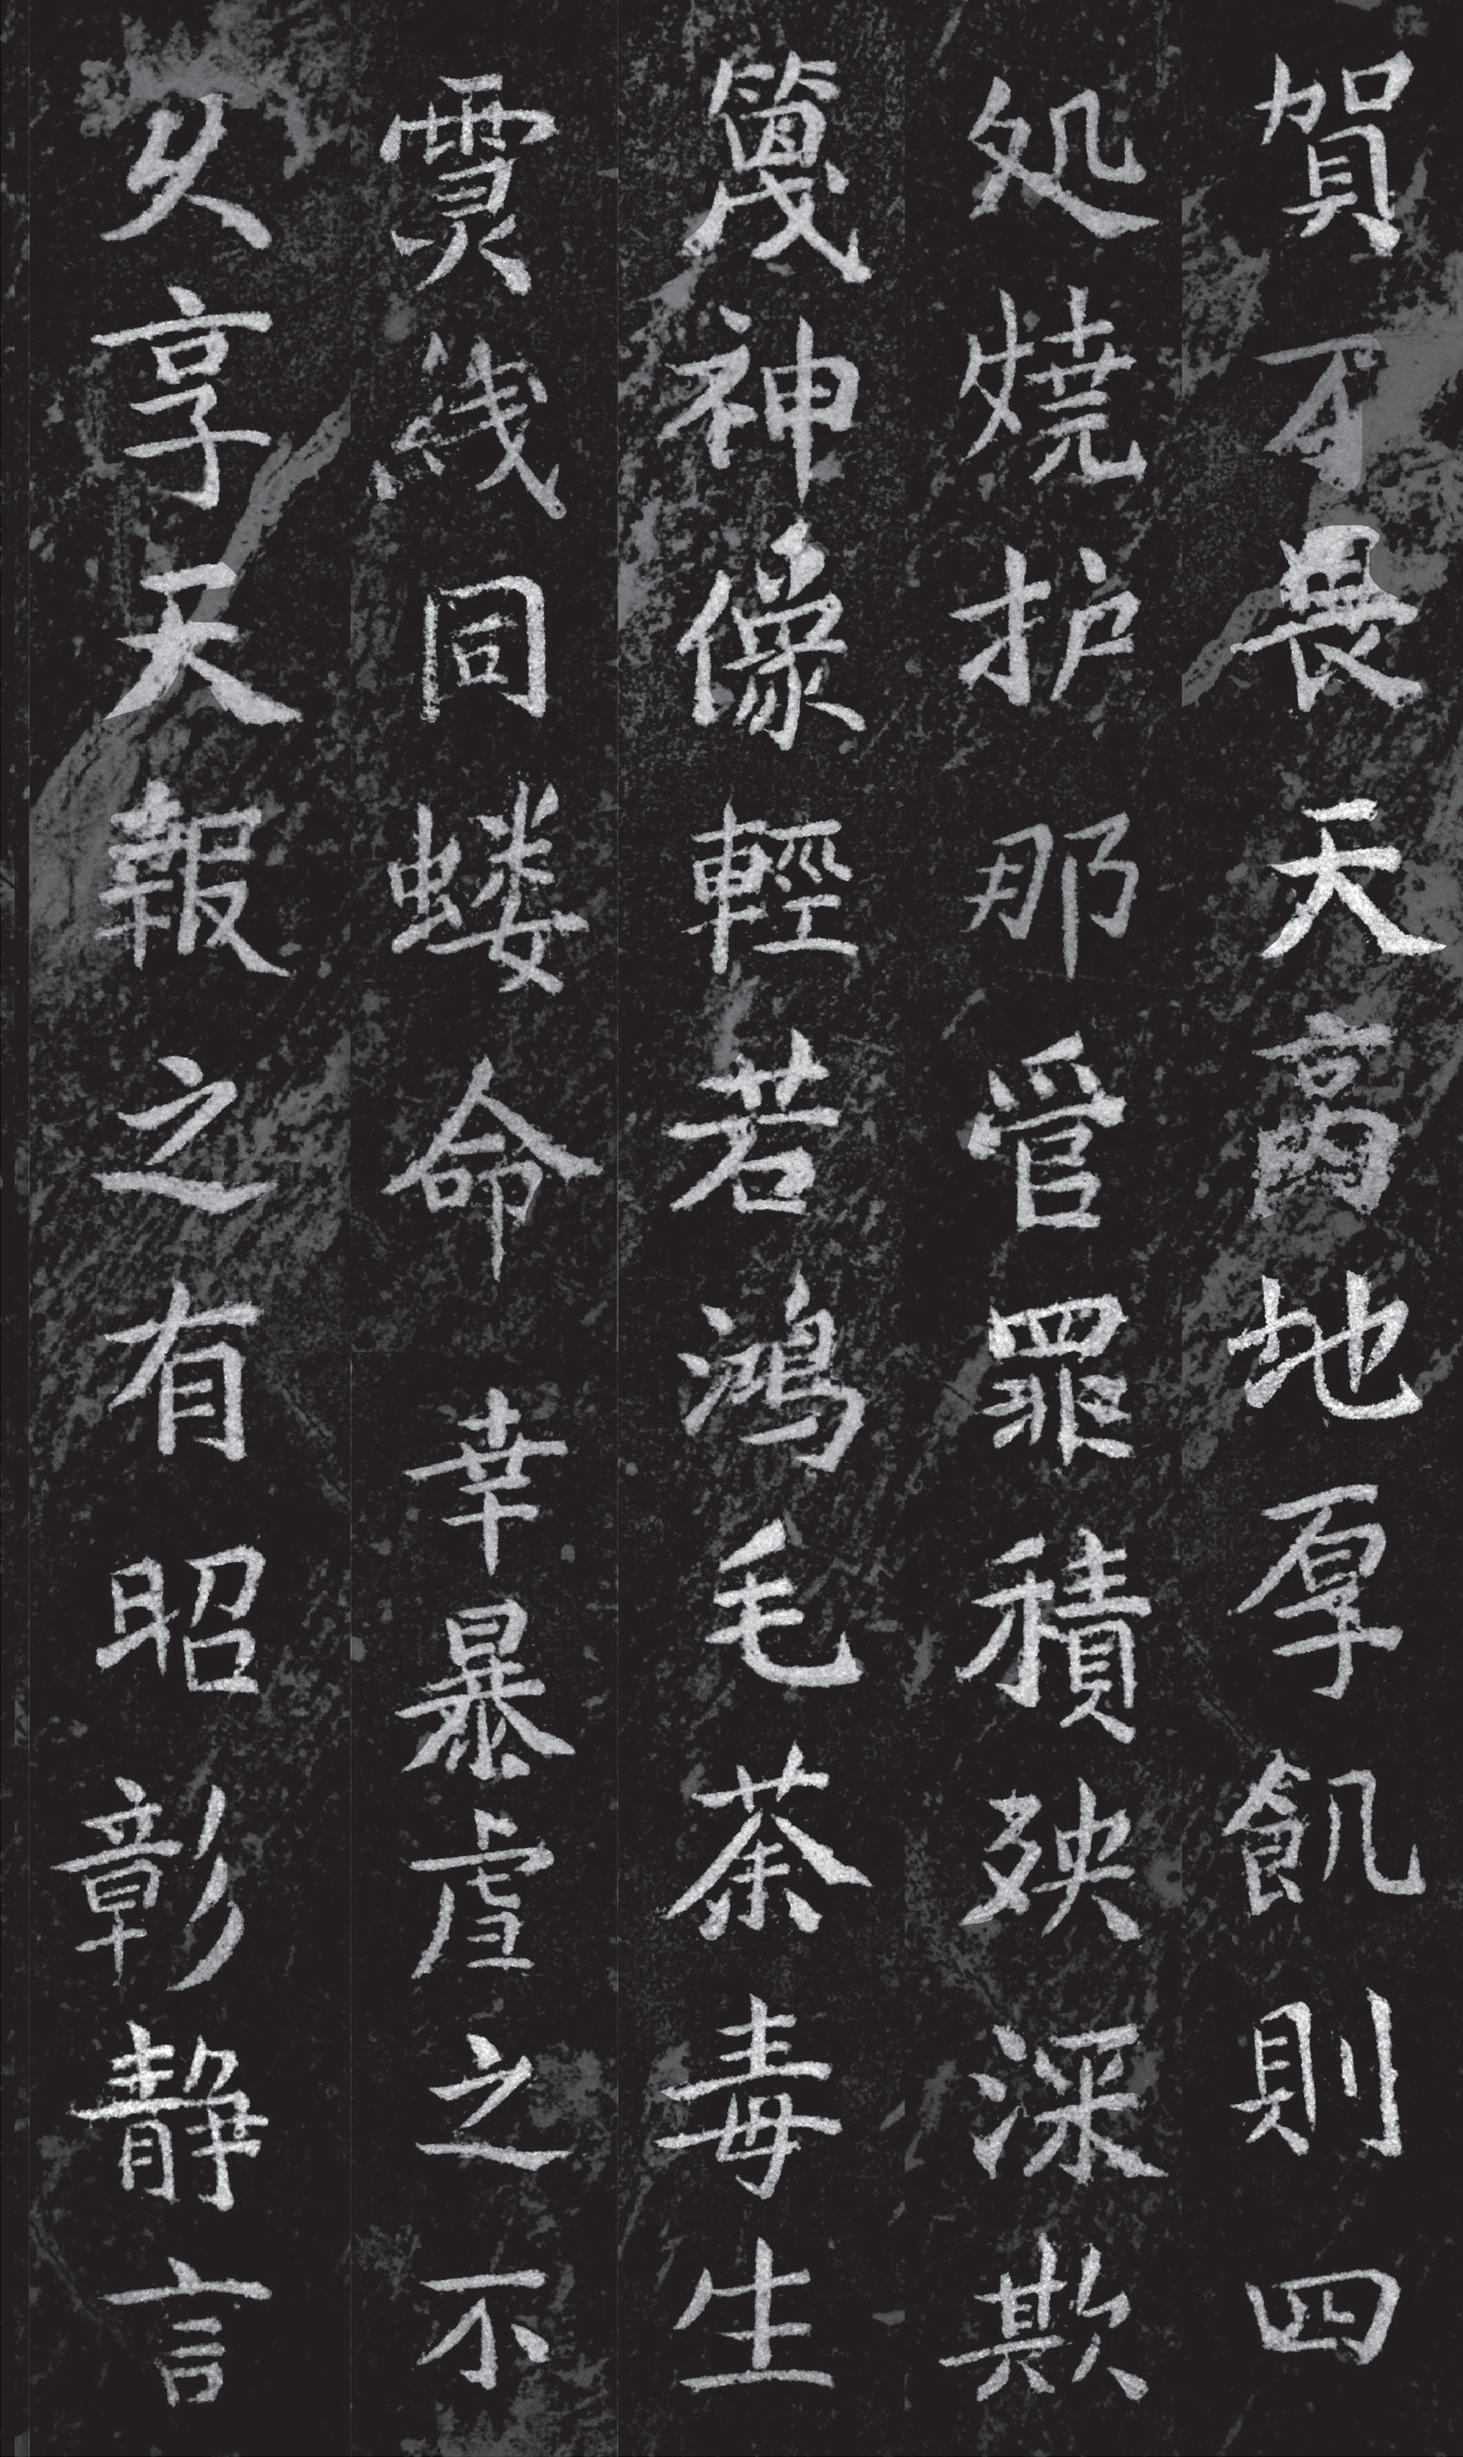 賀不畏天高地厚飢則四
処燒护那管罪積殃深欺
篾神像輕若鴻毛荼毒生
霊綫同蝼命幸暴虐之不
久享天報之有昭彰靜言